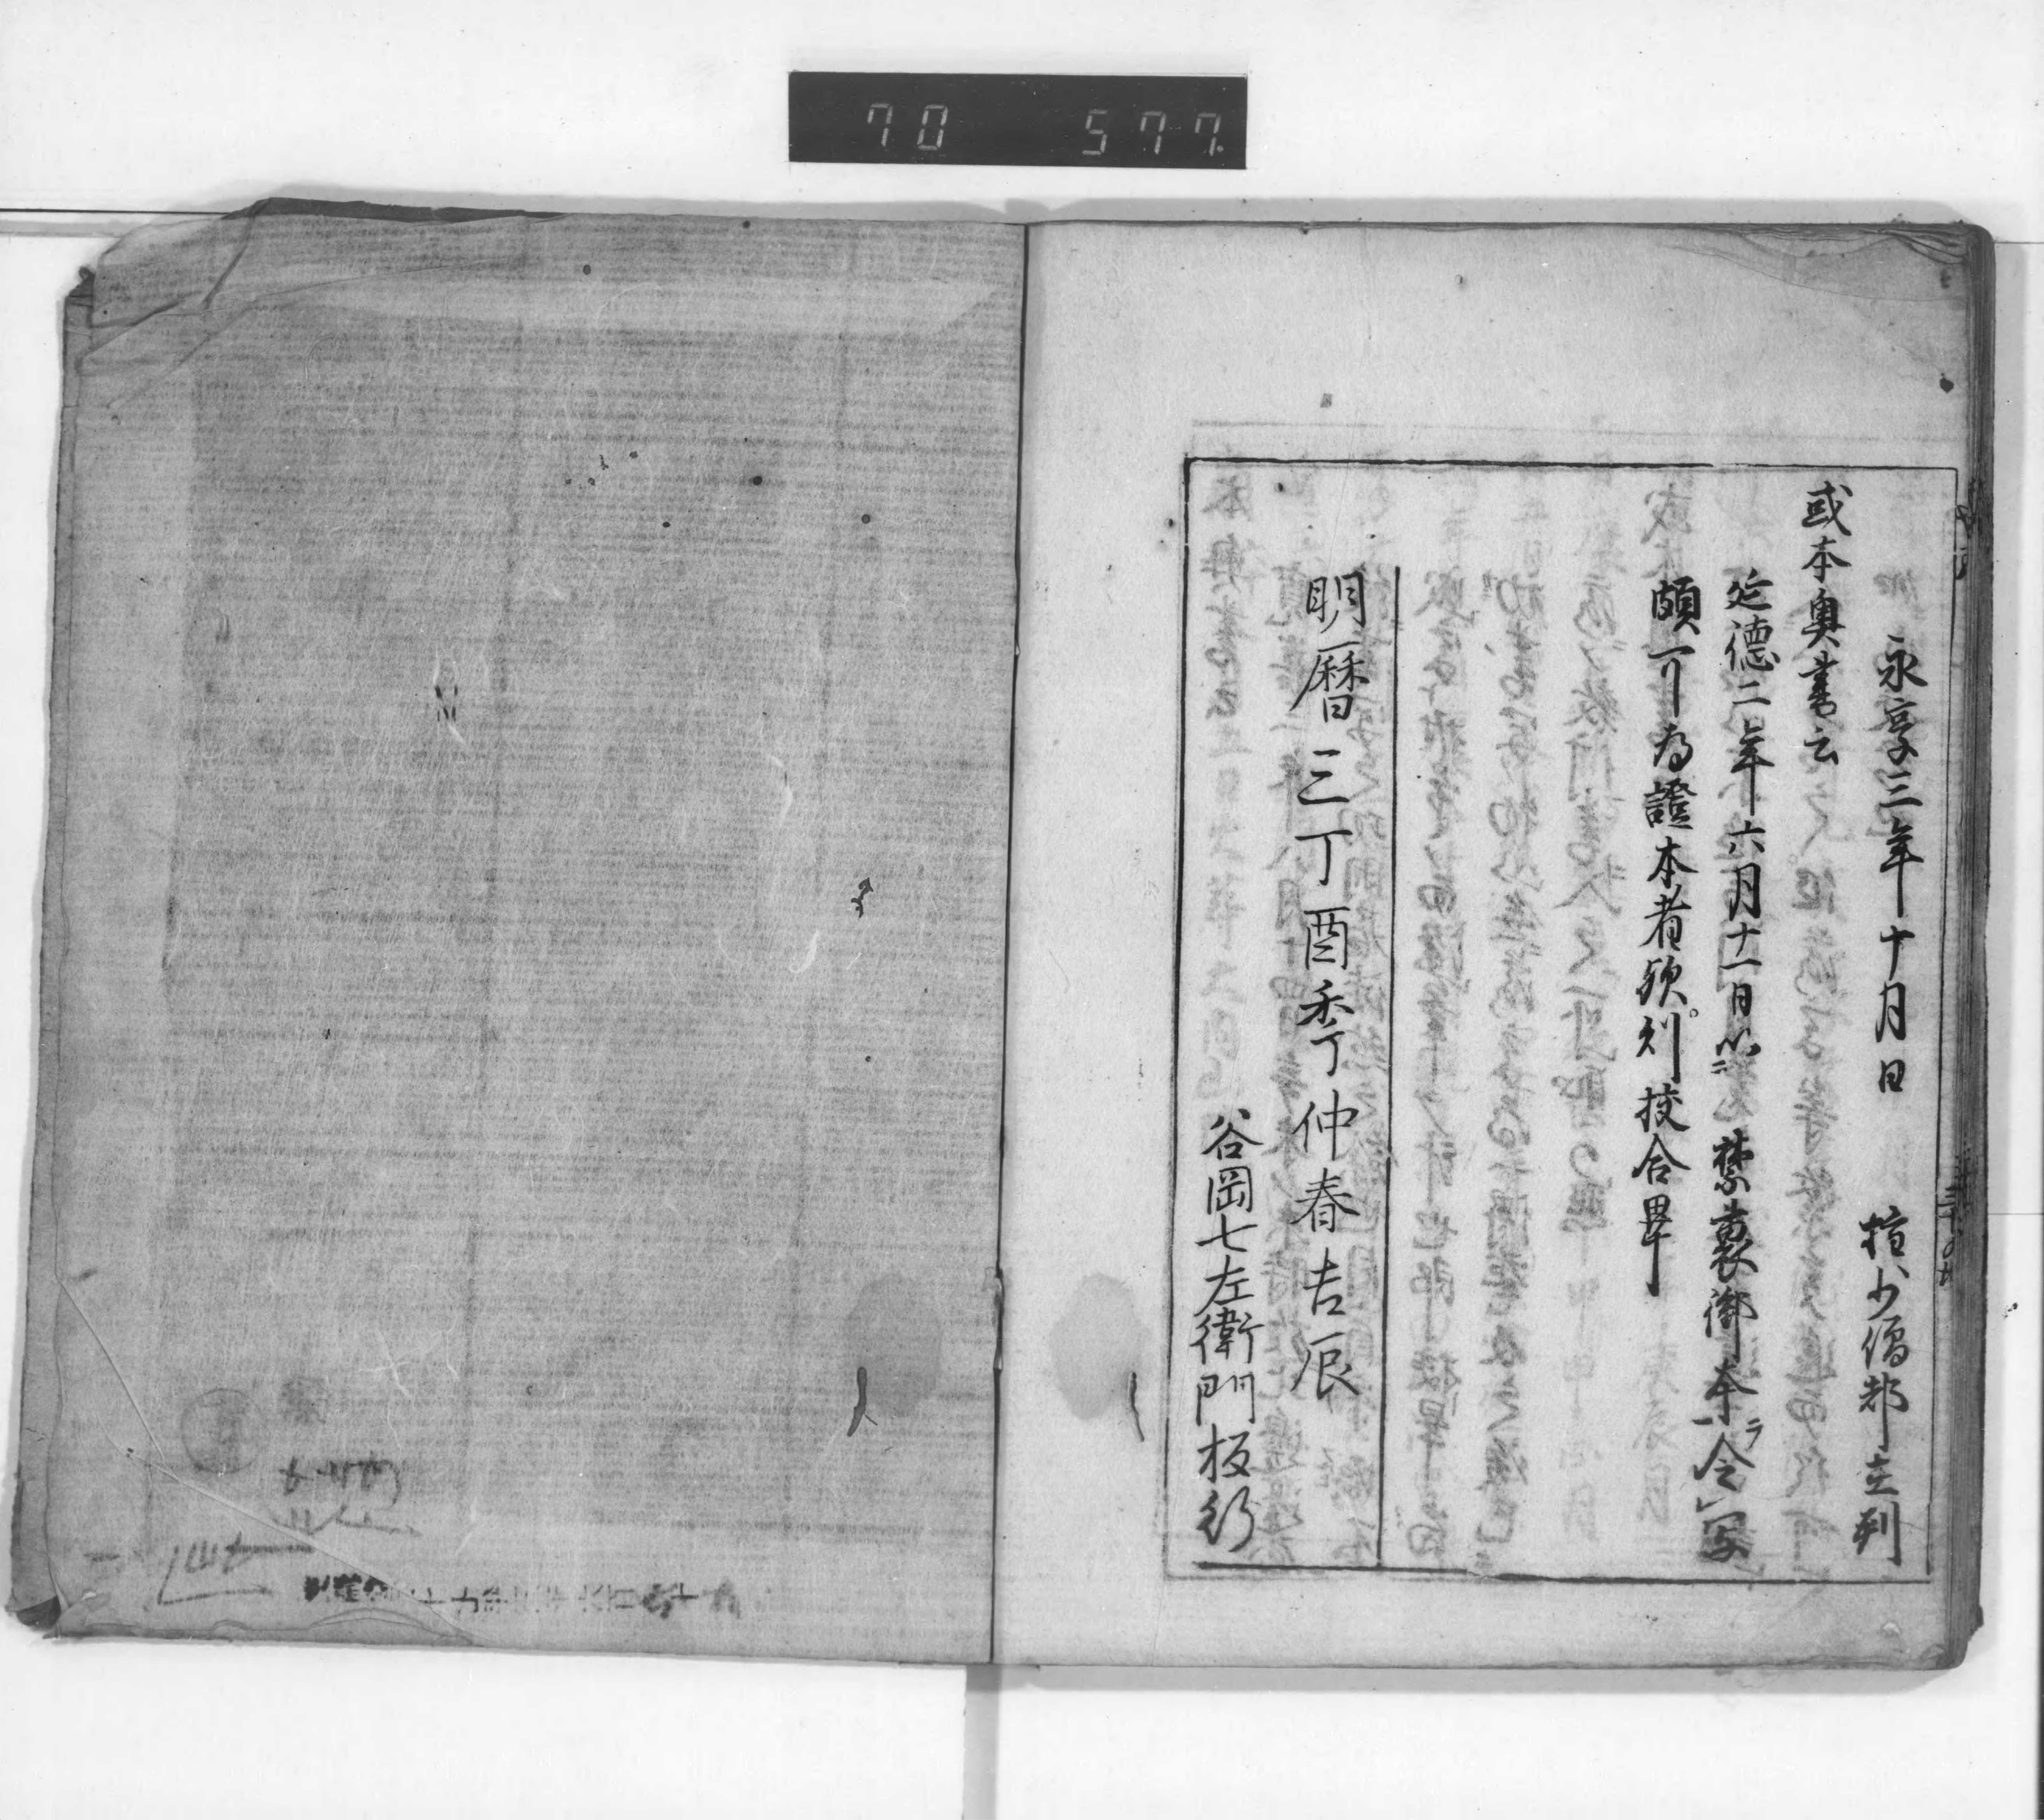 70 577.
永享三年十月日 権少僧都玄判
或本奥書云
延德二年六月十一日以ニ禁裏御本ヲ令写
頗可為證本者歟則校合畢
明暦三丁酉季仲春吉辰
谷岡七左衛門板行